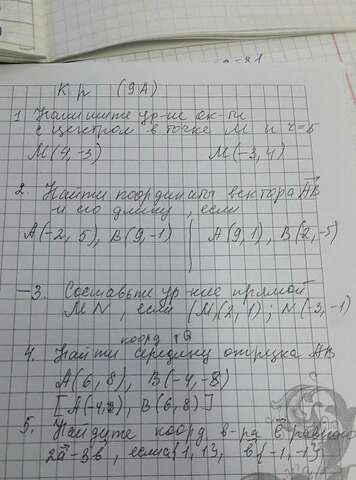 К р (9А)
1 Напишите ур-ие ок-ти
с центром в точке М и r=5
М(4,-3) М(-3,4)
2. Найти координаты вектора АВ
и его длину, если
А(-2, 5), В(9,-1) | А(9,1), В(2,-5)
-3. Составьте ур-ние прямой
MN, если (М(2, 1); N(-3,-1)
коорд
4. Найти середину отрезка АВ
А(6,8), В(-4,-8)
[А(-4,8), В(6,8)]
5. Найдите коорд в-ра равного
2а-3в, если а{1,1}, в{-1,-1}